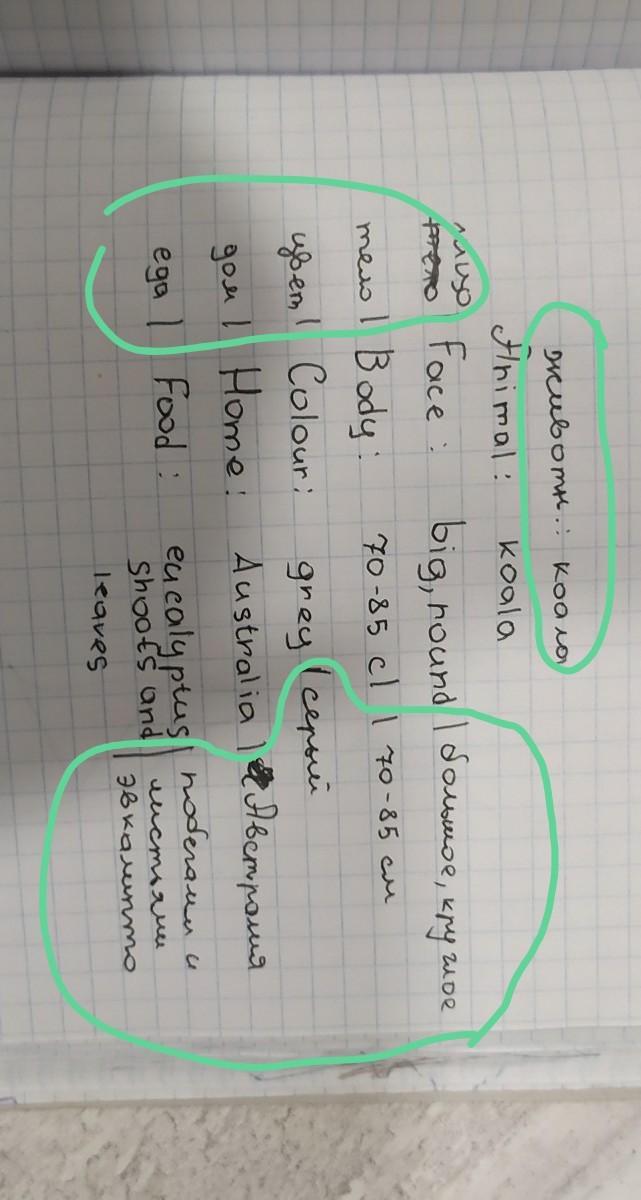 животн.: коала
Animal: koala
лицо | Face: big, round | большое, круглое
тело | Body: 70-85 cl | 70-85 см
цвет | Colour: grey | серый
дом | Home: Australia | Австралия
еда | Food: eucalyptus | побегами и
shoots and | листьями
leaves эвкалипто